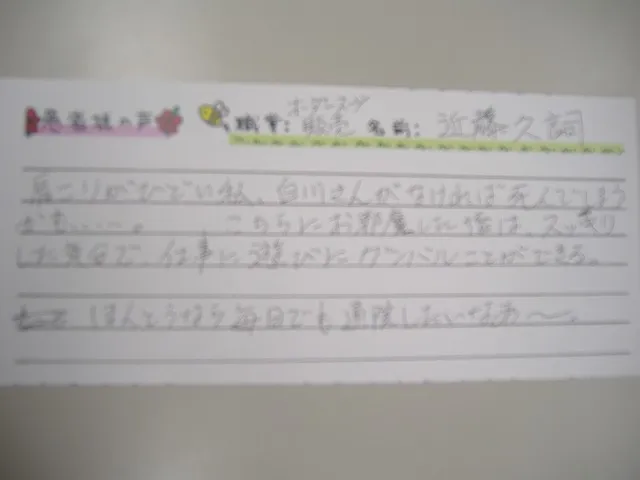 患者様の声 職業: オーダースーツ 販売 名前: 近藤久詞
肩こりがひどい私、白川さんがなければ死んでしまう
かも・・・・・。 こちらにお邪魔した後は、スッキリ
した気分で、仕事に遊びにガンバルことができる。
ほんとうなら毎日でも通院したいなあ〜。